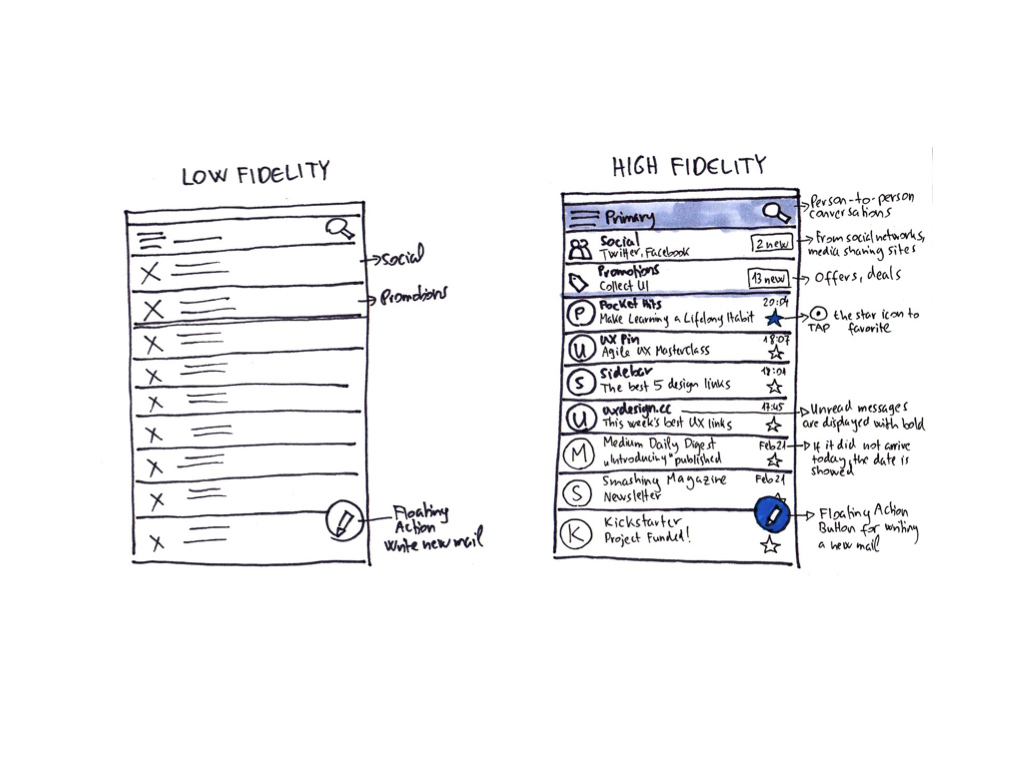 LOW FIDELITY
Social
Promotions
Floating
Action
Write new mail
HIGH FIDELITY
Primary
Person-to-person
conversations
Social
Twitter, Facebook
2 new
From social networks,
media sharing sites
Promotions
Collect UI
13 new
Offers, deals
P
Pocket Hits
Make Learning a Lifelong Habit
20:04
the star icon to
TAP favorite
U
UX Pin
Agile UX Masterclass
18:07
S
Sidebar
The best 5 design links
18:01
U
uxdesign.cc
This week's best UX links
17:45
Unread messages
are displayed with bold
M
Medium Daily Digest
„Introducing" published
Feb 21
If it did not arrive
today, the date is
showed
S
Smashing Magazine
Newsletter
Feb 21
K
Kickstarter
Project Funded!
Floating Action
Button for writing
a new mail